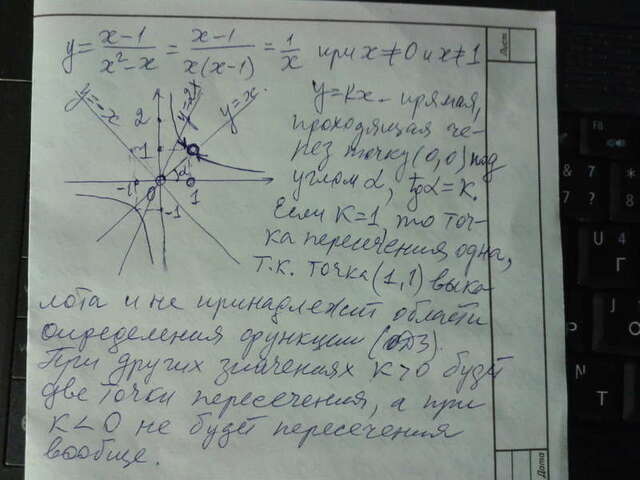 y = x-1/x²-x = x-1/x(x-1) = 1/x при x≠0 и x≠1
y=-x
y=2x
y=x
2
1
-1
0
α
1
-1
y=kx - прямая,
проходящая че-
рез точку (0,0) под
углом α, tgα=k.
Если k=1 то точ-
ка пересечения одна,
т.к. точка (1,1) выко-
лота и не принадлежит области
определения функции (ОДЗ).
При других значениях k>0 будет
две точки пересечения, а при
k<0 не будет пересечения
вообще.
Лист
Дата
&
7
7
?
*
8
8
U
4
Г
J
О
K